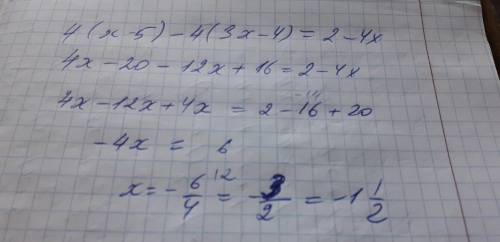 4(x-5)-4(3x-4)=2-4x
4x-20-12x+16=2-4x
4x-12x+4x = 2-16+20
-4x = 6
x=-6/4 = 3/2 = -1 1/2